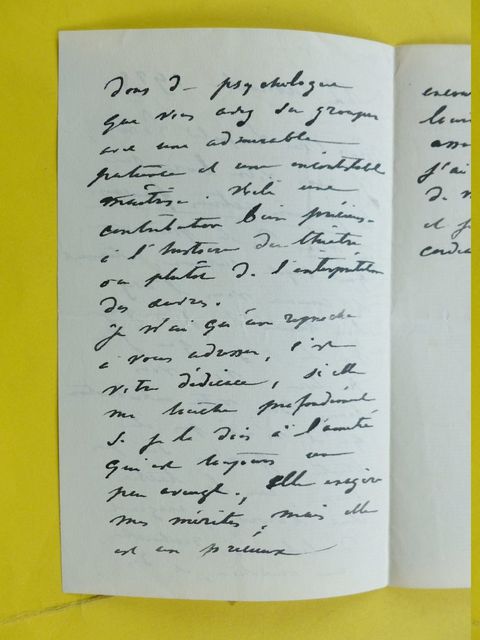 dons de psychologue
que vous avez su grouper
avec une admirable
patience et une incontestable
maîtrise. Voilà une
contribution bien précieuse
à l'histoire du théâtre
ou plutôt de l'interprétation
des œuvres.
Je n'ai qu'un reproche
à vous adresser, c'est
votre dédicace, si elle
me touche profondément
et je le dois à l'amitié
qui est toujours un
peu aveugle, elle exagère
mes mérites, mais elle
est un précieux
encou
leur
j'ai
de v
et je
cordia